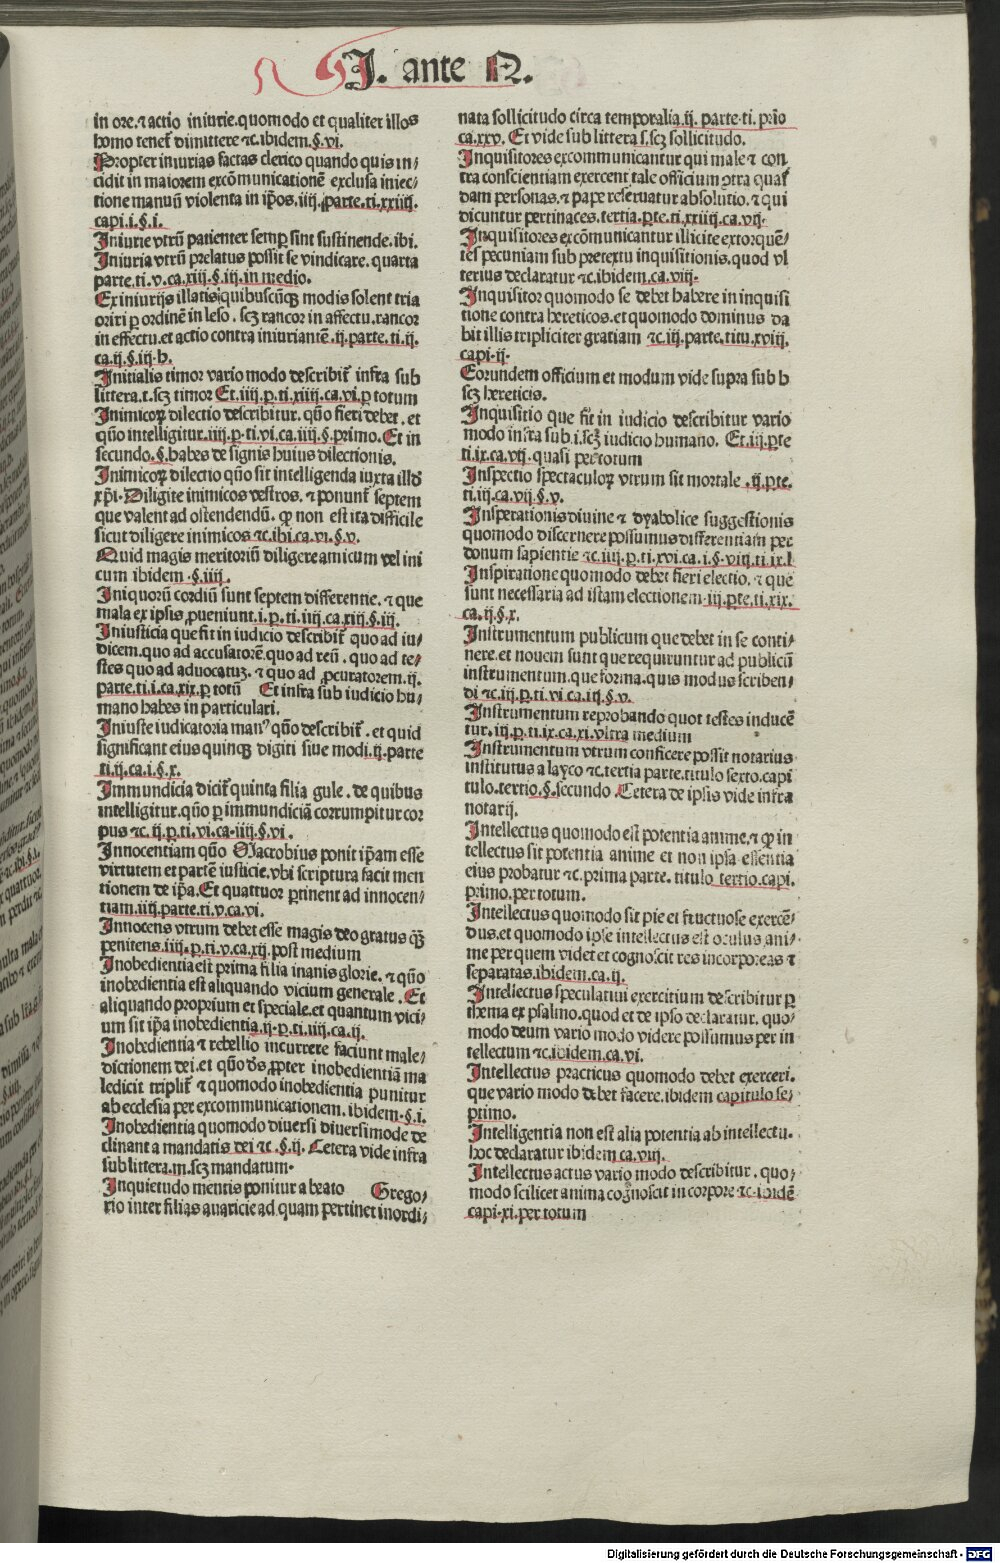 J. ante N.
in ore.⁊ actio iniurie.quomodo et qualiter illos
homo tenet̄ dimittere ⁊c.ibidem.§.vi.
Propter iniurias factas clerico quando quis in⸗
cidit in maiorem excōmunicationē exclusa iniec⸗
tione manuū violenta in ip̄os.iiij.parte.ti.xxiiij.
capi.i.§.i.
Iniurie vtrū patienter semꝑ sint sustinende.ibi.
Iniuria vtrū prelatus possit se vindicare.quarta
parte.ti.v.ca.xiij.§.iij.in medio.
Ex iniurijs illatis quibuscūqꝫ modis solent tria
oriri ꝑ ordinē in leso.scꝫ rancor in affectu.rancor
in effectu.et actio contra iniuriantē.ij.parte.ti.ij.
ca.ij.§.iij.h.
Initialis timor vario modo describit̄ infra sub
littera.t.scꝫ timor Et.iiij.p.ti.xiiij.ca.vi.ꝑ totum
Inimicoꝝ dilectio describitur.quō fieri debet.et
quō intelligitur.iiij.p.ti.vi.ca.iiij.§.primo.Et in
secundo.§.habes de signis huius dilectionis.
Inimicoꝝ dilectio quō sit intelligenda iuxta illđ
xp̄i.Diligite inimicos vestros.⁊ ponunt̄ septem
que valent ad ostendendū.ꝙ non est ita difficile
sicut diligere inimicos ⁊c.ibi.ca.vi.§.v.
Quid magis meritoriū diligere amicum vel ini
cum ibidem.§.iiij.
Iniquorū cordiū sunt septem differentie.⁊ que
mala ex ipsis ꝓueniunt.i.p.ti.iiij.ca.xiij.§.iij.
Iniusticia que fit in iudicio describit̄ quo ad iu⸗
dicem.quo ad accusatorē.quo ad reū.quo ad te⸗
stes quo ad aduocatuꝫ.⁊ quo ad ꝓcuratorem.ij.
parte.ti.i.ca.xix.ꝑ totū Et infra sub iudicio hu⸗
mano habes in particulari.
Iniuste iudicatoria manꝰ quō describit̄.et quid
significant eius quinqꝫ digiti siue modi.ij.parte
ti.ij.ca.i.§.x.
Immundicia dicit̄ quinta filia gule.de quibus
intelligitur.quō ꝑ immundiciā corrumpitur cor
pus ⁊c.ij.p.ti.vi.ca.iiij.§.vi.
Innocentiam quō Macrobius ponit ip̄am esse
virtutem et partē iusticie.vbi scriptura facit men
tionem de ip̄a.Et quattuor ꝑtinent ad innocen⸗
tiam.iiij.parte.ti.v.ca.vi.
Innocens vtrum debet esse magis deo gratus qꝫ̄
penitens.iiij.p.ti.v.ca.xij.post medium
Inobedientia est prima filia inanis glorie.⁊ quō
inobedientia est aliquando vicium generale.Et
aliquando proprium et speciale.et quantum vici⸗
um sit ip̄a inobedientia.ij.p.ti.iiij.ca.ij.
Inobedientia ⁊ rebellio incurrere faciunt male⸗
dictionem dei.et quō dn̄s ꝓpter inobedientiā ma
ledicit triplit̄ ⁊ quomodo inobedientia punitur
ab ecclesia per excommunicationem.ibidem.§.i.
Inobedientia quomodo diuersi diuersimode de
clinant a mandatis dei ⁊c.§.ij.Cetera vide infra
sub littera.m.scꝫ mandatum.
Inquietudo mentis ponitur a beato Grego⸗
rio inter filias auaricie ad quam pertinet inordi⸗
nata sollicitudo circa temporalia.ij.parte.ti.prīo
ca.xxv.Et vide sub littera s.scꝫ sollicitudo.
Inquisitores excommunicantur qui male ⁊ con
tra conscientiam exercent tale officium ꝯtra quas
dam personas.⁊ pape reseruatur absolutio.⁊ qui
dicuntur pertinaces.tertia.ꝑte.ti.xxiiij.ca.vij.
Inquisitores excōmunicantur illicite extorquē⸗
tes pecuniam sub pretextu inquisitionis.quod vl
terius declaratur ⁊c.ibidem.ca.viij.
Inquisitor quomodo se debet habere in inquisi
tione contra hereticos.et quomodo dominus da
bit illis tripliciter gratiam ⁊c.iij.parte.titu.xviij.
capi.ij.
Eorundem officium et modum vide supra sub h
scꝫ hereticis.
Inquisitio que fit in iudicio describitur vario
modo infra sub.i.scꝫ iudicio humano.Et.iij.ꝑte
ti.ix.ca.vij.quasi per totum
Inspectio spectaculoꝝ vtrum sit mortale.ij.ꝑte.
ti.iij.ca.vij.§.v.
Insperationis diuine ⁊ dyabolice suggestionis
quomodo discernere possumus differentiam per
donum sapientie ⁊c.iiij.p.ti.xvi.ca.i.§.viij.ti ix.l
Inspiratione quomodo debet fieri electio.⁊ que
sunt necessaria ad istam electionem.iij.ꝑte.ti.xix.
ca.ij.§.x.
Instrumentum publicum que debet in se conti⸗
nere.et nouem sunt que requiruntur ad publicū
instrumentum.que forma.quis modus scriben⸗
di ⁊c.iij.p.ti.vi.ca.iij.§.v.
Instrumentum reprobando quot testes inducē
tur.iij.p.ti.ix.ca.xi.vltra medium
Instrumentum vtrum conficere possit notarius
institutus a layco ⁊c.tertia parte.titulo sexto.capi
tulo.tertio.§.secundo.Cetera de ipsis vide infra
notarij.
Intellectus quomodo est potentia anime.⁊ ꝙ in
tellectus sit potentia anime et non ipsa essentia
eius probatur ⁊c.prima parte.titulo tertio.capi.
primo.per totum.
Intellectus quomodo sit pie et fructuose exercē⸗
dus.et quomodo ipse intellectus est oculus ani⸗
me per quem videt et cognoscit res incorporeas ⁊
separatas.ibidem.ca.ij.
Intellectus speculatiui exercitium describitur ꝑ
thema ex psalmo.quod et de ipso declaratur.quo⸗
modo deum vario modo videre possumus per in
tellectum ⁊c.ibidem.ca.vi.
Intellectus practicus quomodo debet exerceri.
que vario modo debet facere.ibidem capitulo se⸗
ptimo.
Intelligentia non est alia potentia ab intellectu.
hoc declaratur ibidem ca.viij.
Intellectus actus vario modo describitur.quo⸗
modo scilicet anima cognoscit in corpore ⁊c.ibidē
capi.xi.per totum
Digitalisierung gefördert durch die Deutsche Forschungsgemeinschaft - DFG